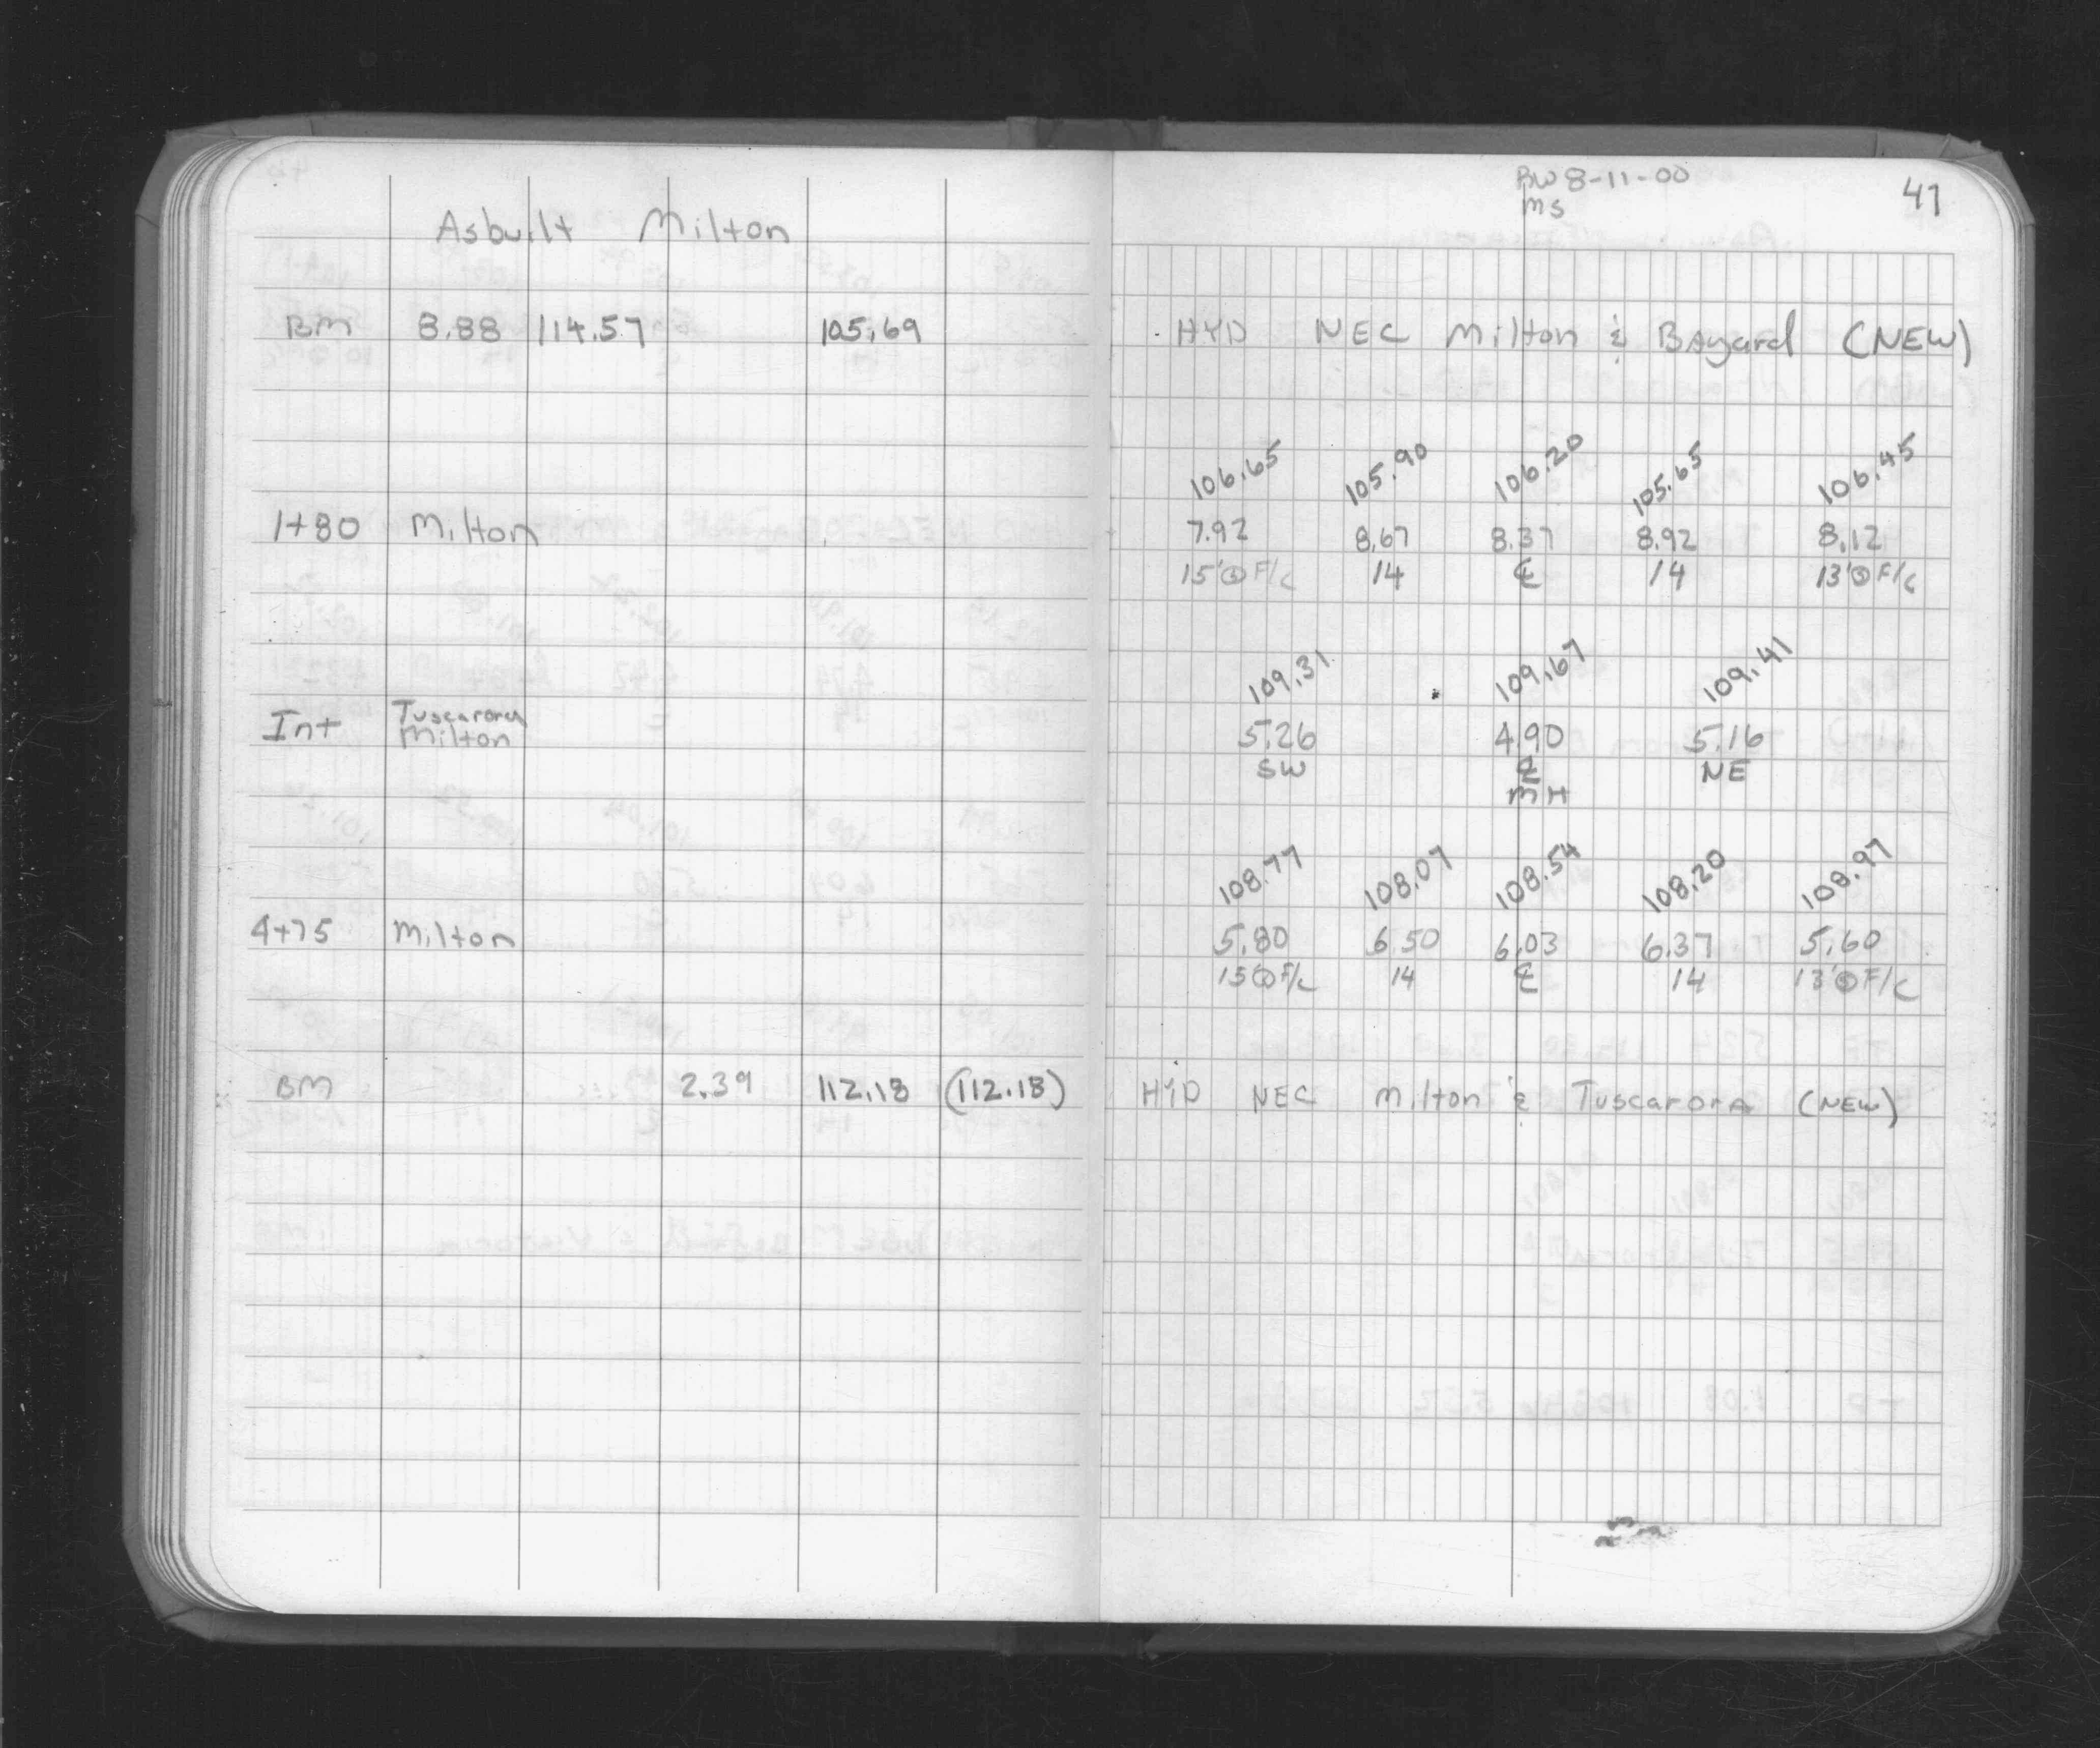 Asbuilt Milton
BM 8.88 114.57 105.69
1+80 Milton
Int Tuscarora
Milton
4+75 Milton
BM 2.39 112.18 (112.18)
BW 8-11-00
MS
41
HYD NEC Milton & Bayard (NEW)
106.65 105.90 106.20 105.65 106.45
7.92 8.67 8.37 8.92 8.12
15' @ F/C 14 ℄ 14 13' @ F/C
109.31 109.67 109.41
5.26 4.90 5.16
SW ℄ NE
MH
108.77 108.07 108.54 108.20 108.97
5.80 6.50 6.03 6.37 5.60
15' @ F/C 14 ℄ 14 13' @ F/C
HYD NEC Milton & Tuscarora (NEW)